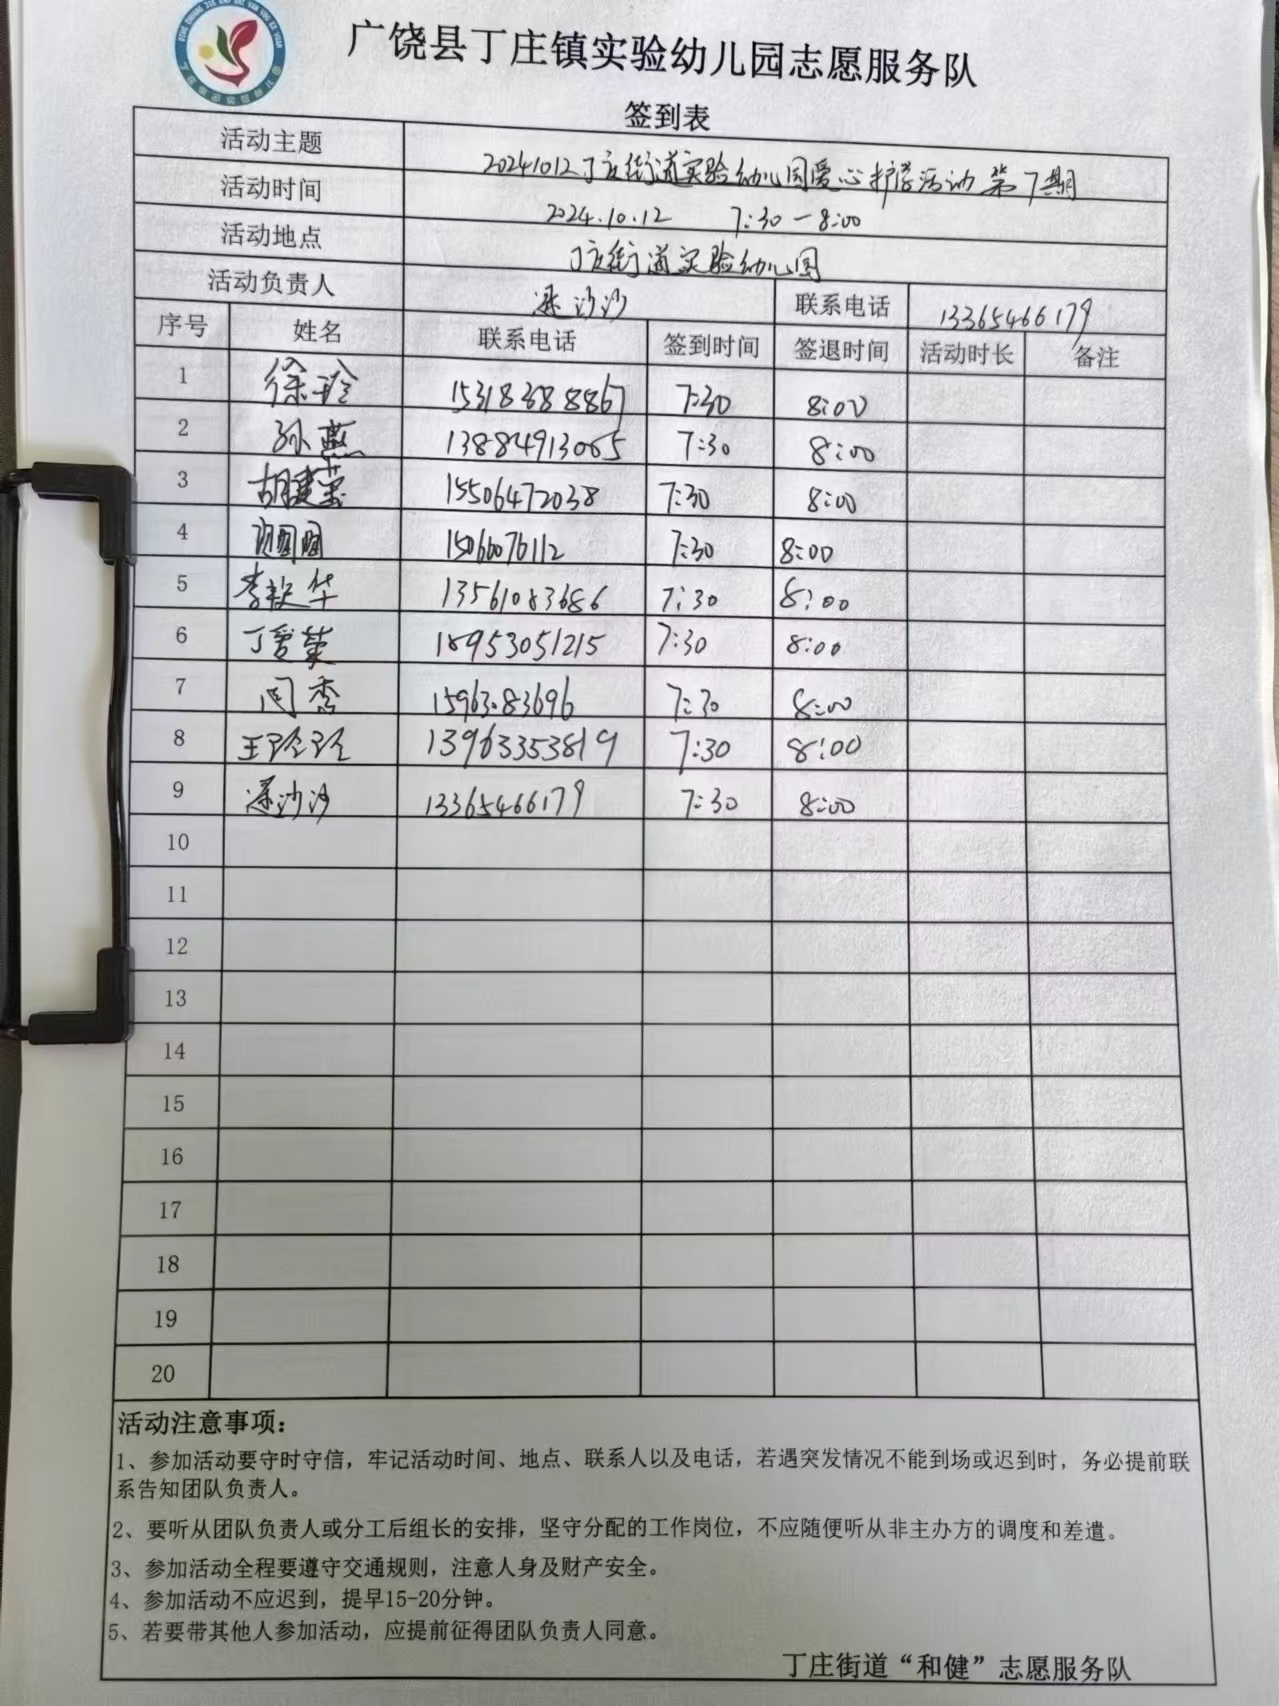 广饶县丁庄镇实验幼儿园志愿服务队
签到表
活动主题 20241012丁庄街道实验幼儿园爱心护学活动 第7期
活动时间 2024.10.12 7:30-8:00
活动地点 丁庄街道实验幼儿园
活动负责人 沙沙 联系电话 13365466179
序号 姓名 联系电话 签到时间 签退时间 活动时长 备注
1 徐玲 15318388867 7:30 8:00
2 孙燕 13884913065 7:30 8:00
3 胡建 15506472038 7:30 8:00
4 1506076112 7:30 8:00
5 李 华 13561083686 7:30 8:00
6 丁爱荣 18953051215 7:30 8:00
7 闫秀 7:30 8:00
8 王玲玲 13963353819 7:30 8:00
9 沙沙 13365466179 7:30 8:00
10
11
12
13
14
15
16
17
18
19
20
活动注意事项：
1、参加活动要守时守信，牢记活动时间、地点、联系人以及电话，若遇突发情况不能到场或迟到时，务必提前联
系告知团队负责人。
2、要听从团队负责人或分工后组长的安排，坚守分配的工作岗位，不应随便听从非主办方的调度和差遣。
3、参加活动全程要遵守交通规则，注意人身及财产安全。
4、参加活动不应迟到，提早15-20分钟。
5、若要带其他人参加活动，应提前征得团队负责人同意。
丁庄街道“和健”志愿服务队